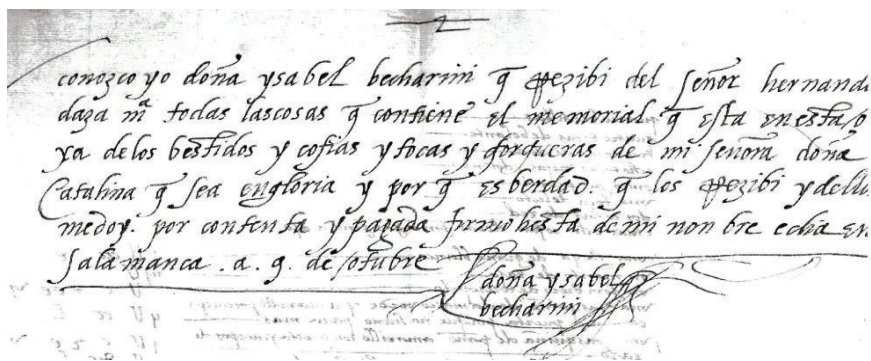 conozco yo doña ysabel becharini q̃ rrezibi del señor hernand
daza mĩ todas lascosas q̃ contiene el memorial q̃ esta en esta fo
xa delos bestidos y cofias y tocas y gorgueras de mi señora doña
Catalina q̃ sea engloria y por q̃ es berdad. q̃ los rrezibi y dello
medoy. por contenta y pagada firmo hesta de mi nonbre echa en
salamanca . a . 9. de otubre
doña ysabel
becharini